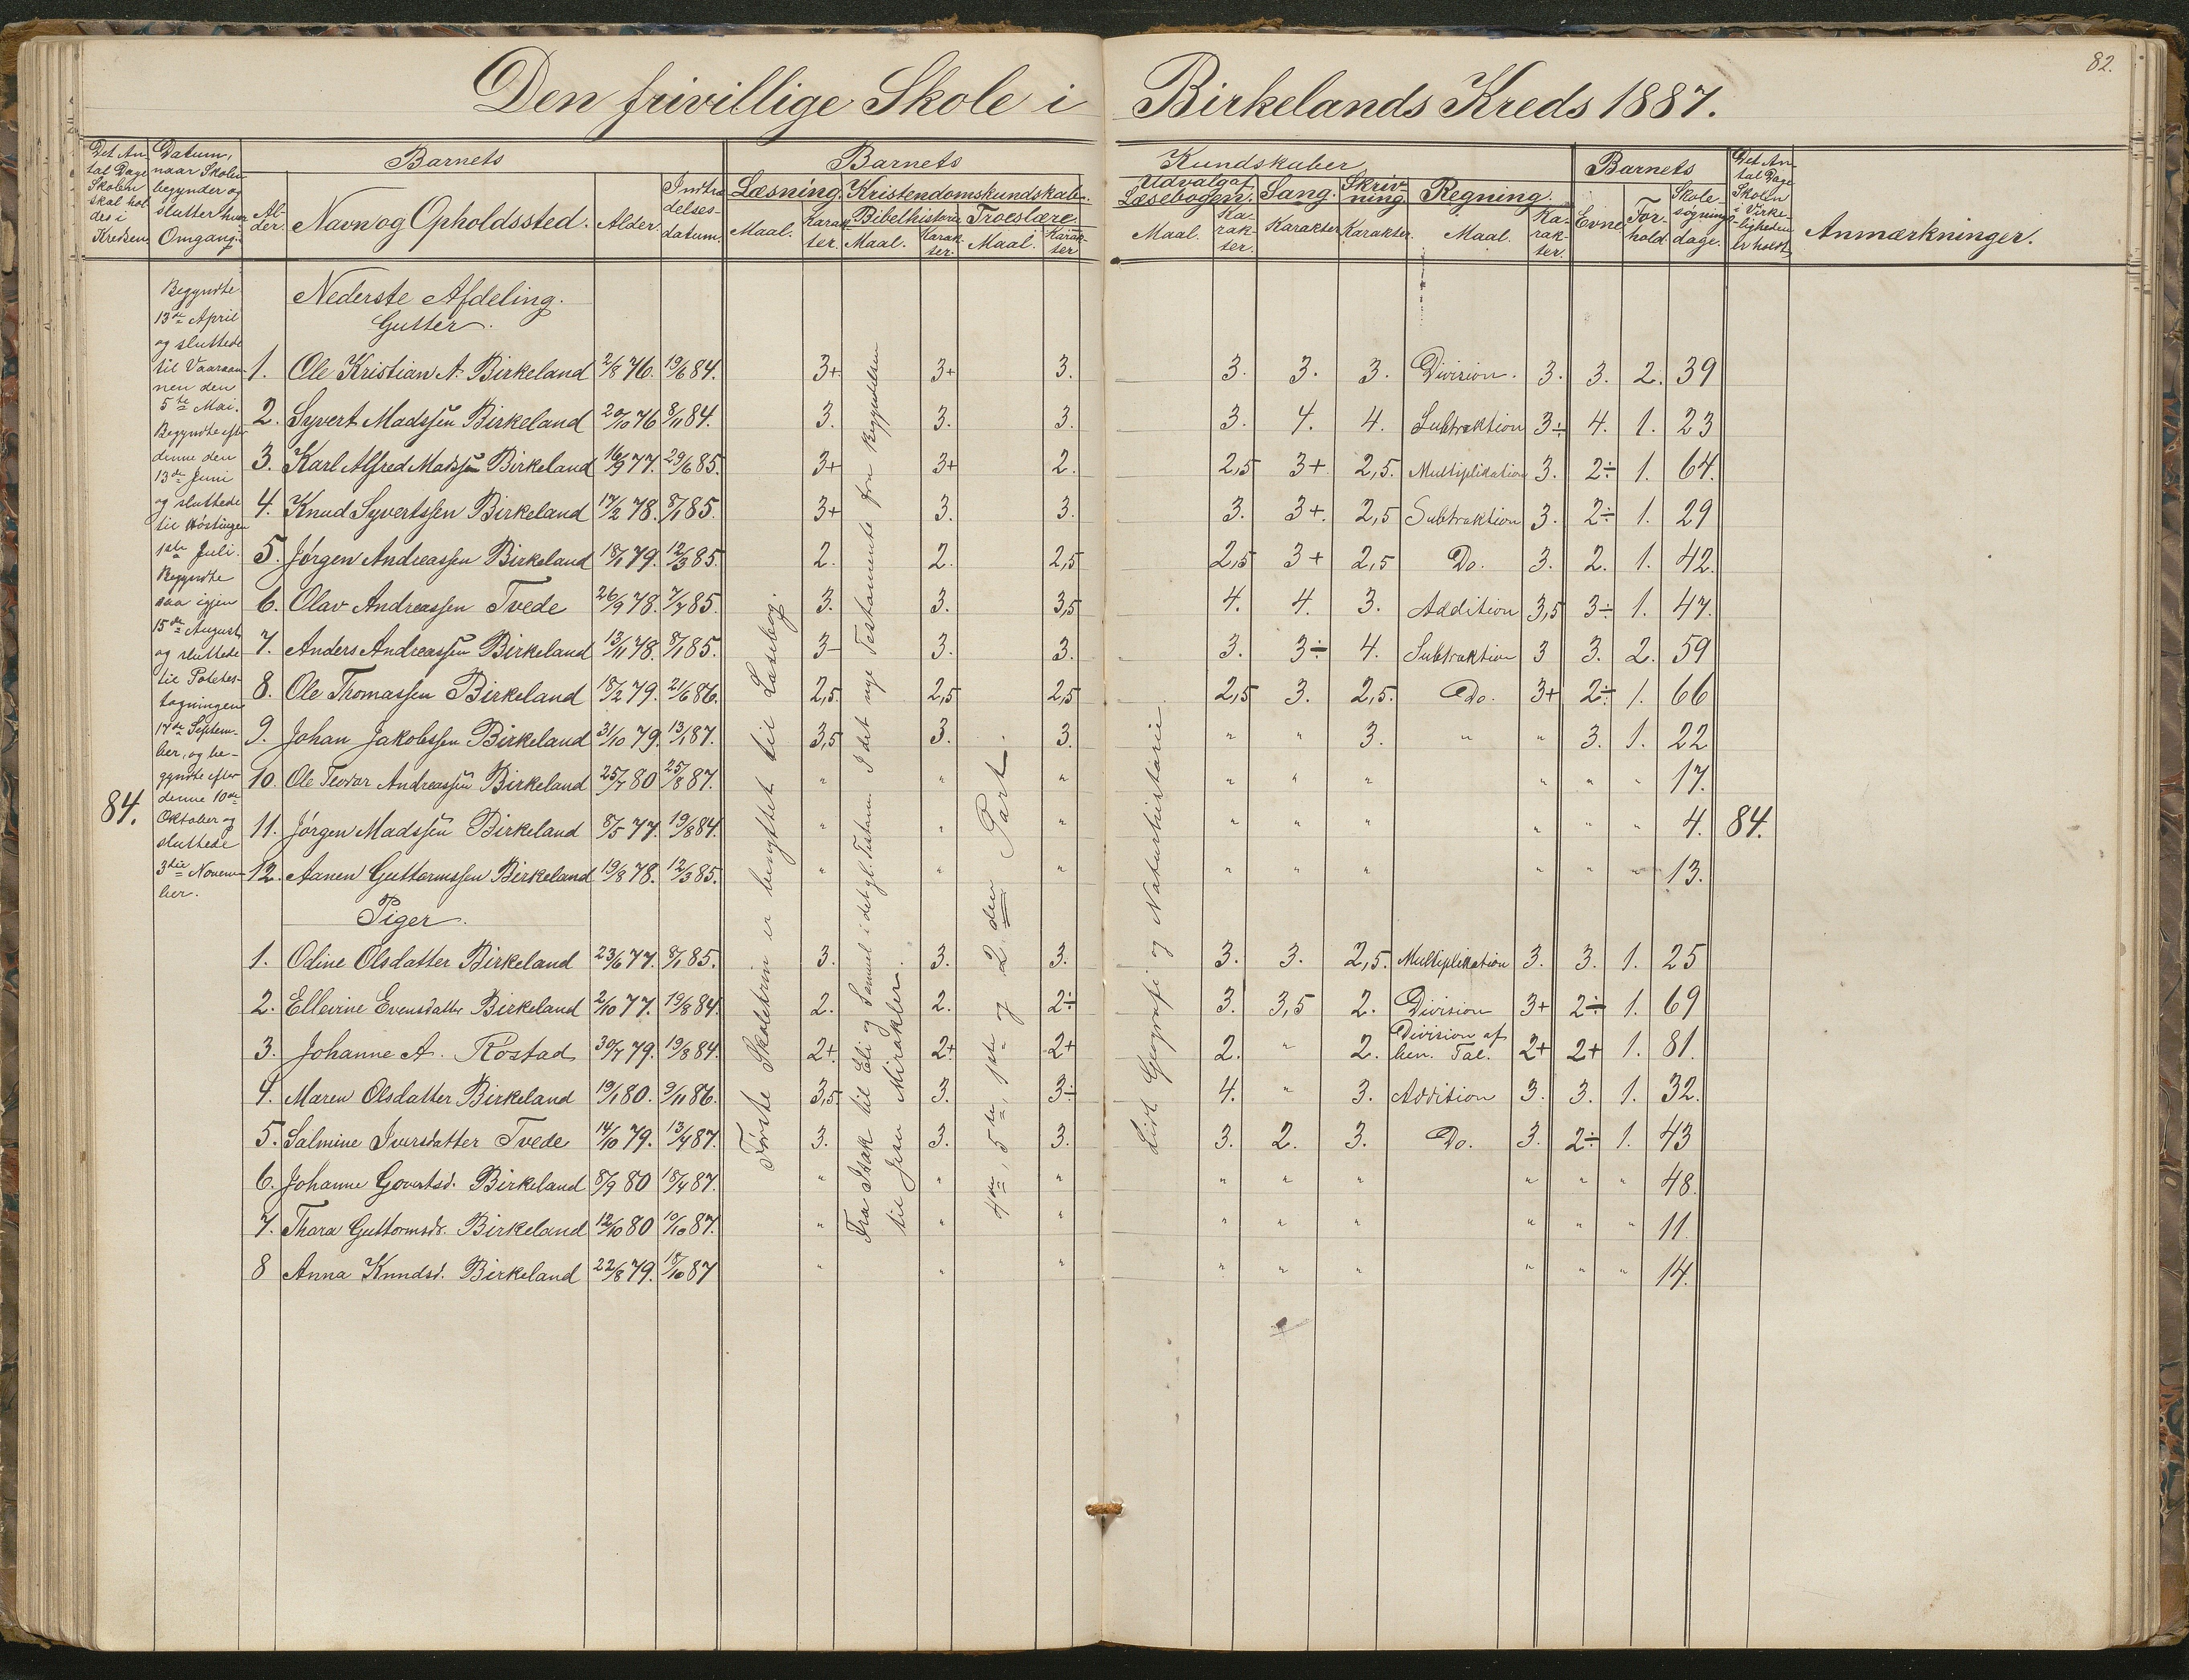 82.
Den frivillige Skole i Birkelands Kreds 1887.
Det Antal Dage Skolen skal holdes i Kredsen
Datum, naar Skolen begynder og slutter hver Omgang.
Barnets
Al-der.
Navn og Opholdssted.
Alder
Indtrædelses-datum.
Barnets Kundskaber
Læsning.
Maal.
Karakter.
Kristendomskundskab.
Bibelhistorie
Maal.
Karakter.
Troeslære.
Maal.
Karakter
Udvalg af Læsebogen.
Maal.
Karakter.
Sang.
Karakter
Skrivning
Karakter.
Regning.
Maal.
Karakter.
Barnets
Evne
Forhold.
Skolesøgningsdage.
Det Antal Dage Skolen i Virkeligheden er holdt
Anmærkninger.
84.
Begyndte
13de April
og sluttede
til Vaaraan-
nen den
5te Mai.
Begyndte efter
denne den
13de Juni
og sluttede
til Høstingen
1ste Juli.
Begyndte
saa igjen
15de August
og sluttede
til Potetes-
tagningen
17de Septem-
ber, og be-
gyndte efter
denne 10de
Oktober og
sluttede
3die Novem-
ber.
Første Skoletrin er benyttet til Læsebog.
Fra Isak til Eli og Samuel i det gl. Testam. I det nye Testamente fra Begyndelsen
til Jesu Mirakler.
4de, 5te, 1ste og 2den Part.
Lidt Geografi og Naturhistorie
Nederste Afdeling.
Gutter.
1. Ole Kristian A. Birkeland 2/8 76. 19/6 84. 3+ 3+ 3. 3. 3. 3. Division. 3. 3. 2. 39
2. Syvert Madssen Birkeland 20/10 76 8/11 84. 3. 3. 3. 3. 4. 4. Subtraktion 3÷ 4. 1. 23
3. Karl Alfred Madssen Birkeland 16/9 77. 29/6 85. 3+ 3+ 2. 2,5 3+ 2,5. Multiplikation 3. 2÷ 1. 64.
4. Knud Syvertssen Birkeland 17/2 78. 8/1 85. 3+ 3. 3. 3. 3+. 2,5 Subtraktion 3. 2÷ 1. 29
5. Jørgen Andreassen Birkeland 18/1 79. 12/3 85. 2. 2. 2,5 2,5 3+ 2,5 Do. 3. 2. 1. 42.
6. Olav Andreassen Tvede 26/9 78. 7/7 85. 3. 3. 3,5 4. 4. 3. Addition 3,5 3÷ 1. 47.
7. Anders Andreassen Birkeland 13/11 78. 8/1 85. 3- 3. 3. 3. 3÷ 4. Subtraktion 3 3. 2. 59
8. Ole Thomassen Birkeland 15/2 79. 21/6 86. 2,5. 2,5 2,5 2,5 3. 2,5. Do. 3+ 2÷ 1. 66
9. Johan Jakobssen Birkeland 31/10 79. 13/1 87. 3,5 3. 3. " " 3. " " 3. 1. 22
10. Ole Teodor Andreassen Birkeland 25/7 80 25/8 87. " " " " " " " " " 17.
11. Jørgen Madssen Birkeland 8/5 77. 19/8 84. " " " " " " " " " 4. 84.
12. Aanen Guttormssen Birkeland 19/8 78. 12/3 85. " " " " " " " " " 13.
Piger.
1. Odine Olsdatter Birkeland 23/6 77. 8/1 85. 3. 3. 3. 3. 3. 2,5. Multiplikation 3. 3. 1. 25
2. Ellevine Evensdatter Birkeland 2/10 77. 19/8 84. 2. 2. 2÷ 3. 3,5 2. Division 3+ 2÷ 1. 69
3. Johanne A. Rostad 30/7 79. 19/8 84. 2+ 2+ 2+ 2. " 2. Division af ben. Tal. 2+ 2+ 1. 81.
4. Maren Olsdatter Birkeland 19/1 80. 9/11 86. 3,5 3. 3÷ 4. " 3. Addition 3. 3. 1. 32.
5. Salmine Iversdatter Tvede 14/10 79. 13/4 87. 3. 3. 3. 3. 2. 3. Do. 3. 2÷ 1. 43
6. Johanne Govertsd. Birkeland 8/9 80 18/4 87. " " " " " " " " " 48.
7. Thara Guttormsdr. Birkeland 12/10 80 10/10 87. " " " " " " " " " 11.
8 Anna Knudsd. Birkeland 22/8 79. 18/10 87 " " " " " " " " " 14.